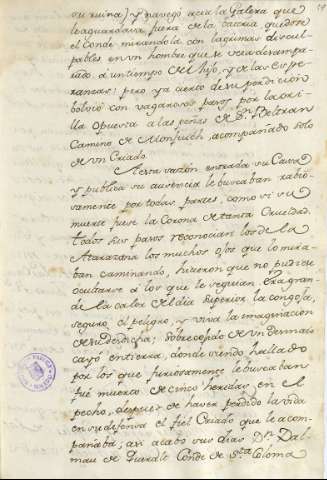 su ruina] y navegó acia la Galera que
le aguardava fuera de la bateria quedose
el Conde mirandola con lagrimas discul-
pables en un hombre que se veia desampa-
rado a un tiempo del hijo, y de las espe-
ranzas: pero ya cierto de su perdicion
bolvió con vagarosos pasos por la ori-
lla opuesta a las peñas de Sn. Beltran
Camino de Monjuich, acompañado solo
de un Criado.
A esta sazon entrada su Casa
y publica su ausencia le buscaban rabio-
samente por todas partes, como si su
muerte fuese la Corona de tanta Crueldad.
todos sus pasos reconocian los de la
Atarazana los muchos ojos que lo mira-
ban caminando, hicieron que no pudiese
ocultarse a los que le seguian: Era gran-
de la calor del dia superior la congoja,
seguro el peligro, y viva la imaginacion
de su desdicha; sobrecogido de un desmaio
cayó en tierra, donde siendo hallado
por los que furiosamente le buscaban
fué muerto de cinco heridas en el
pecho, despues de haver perdido la vida
en su defensa el fiel Criado que le acom-
pañaba; asi acabó sus dias Dn. Dal-
mau de Queralt Conde de Sta. Coloma